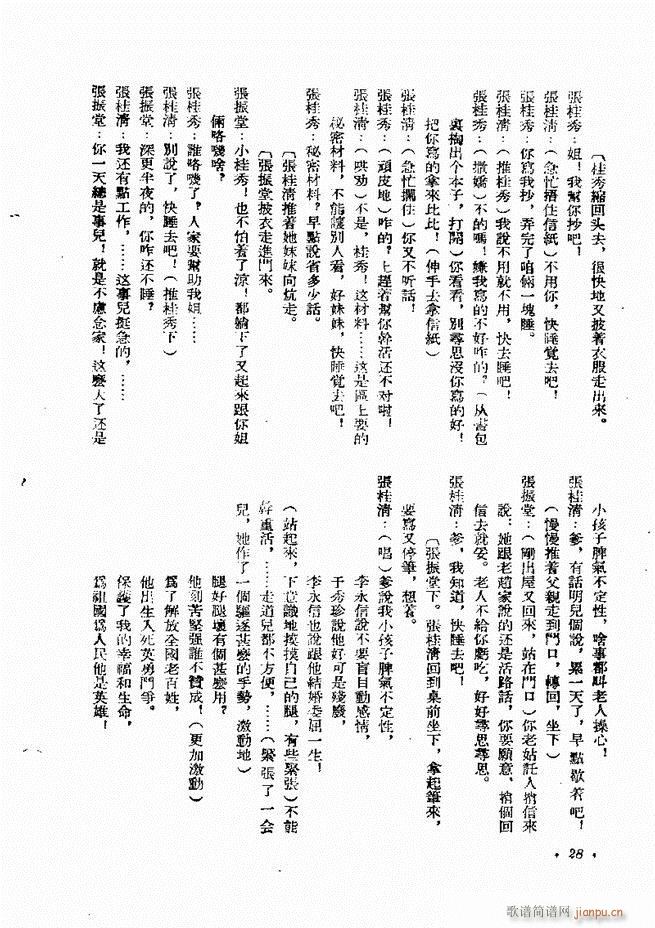 〔桂秀縮回头去，很快地又披着衣服走出來。
張桂秀：姐！我幫你抄吧！
張桂清：（急忙捂住信紙）不用你，快睡覚去吧！
張桂秀：你寫我抄，弄完了咱倆一塊睡。
張桂清：（推桂秀）我說不用就不用，快去睡吧！
張桂秀：（撒嬌）不的嗎！嫌我寫的不好咋的？（从書包
裏掏出个本子，打開）你看看，別尋思沒你寫的好！
把你寫的拿來比比！（伸手去拿信紙）
張桂清：（急忙攔住）你又不听話！
張桂秀：（頑皮地）咋的？上趕着幫你幹活还不对啦！
張桂清：（哄劝）不是，桂秀！这材料……这是區上要的
秘密材料，不能讓別人看，好妹妹，快睡覚去吧！
張桂秀：秘密材料？早點說省多少話。
〔張桂清推着她妹妹向炕走。
〔張振堂披衣走進門來。
張振堂：小桂秀！也不怕着了凉！都躺下了又起來跟你姐
倆咯嘰啥？
張桂秀：誰咯嘰了？人家要幫助我姐……
張桂清：別說了，快睡去吧！（推桂秀下）
張振堂：深更半夜的，你咋还不睡？
張桂清：我还有點工作，……这事兒挺急的，……
張振堂：你一天總是事兒！就是不慮念家！这麼大了还是
小孩子脾氣不定性，啥事都叫老人操心！
張桂清：爹，有話明兒個說，累一天了，早點歇着吧！
（慢慢推着父親走到門口，轉回，坐下）
張振堂：（剛出屋又回來，站在門口）你老姑託人捎信來
說：她跟老趙家說的还是活路話，你要願意，捎個回
信去就妥。老人不給你虧吃，好好尋思尋思。
張桂清：爹，我知道，快睡去吧！
〔張振堂下。張桂清回到桌前坐下，拿起筆來，
要寫又停筆，想着。
張桂清：（唱）爹說我小孩子脾氣不定性，
李永信說不要盲目動感情，
于秀珍說他好可是殘廢，
李永信也說跟他結婚委屈一生！
（站起來，下意識地摸摸自己的腿，有些緊張）不能
幹重活，……走道兒都不方便，……（緊張了一会
兒，她作了一個驅逐甚麼的手勢，激動地）
腿好腿壞有個甚麼用？
他刻苦堅强誰不贊成！（更加激動）
爲了解放全國老百姓，
他出生入死英勇鬥爭，
保護了我的幸福和生命，
爲祖國爲人民他是英雄！
· 28 ·
歌谱简谱网 jianpu.cn